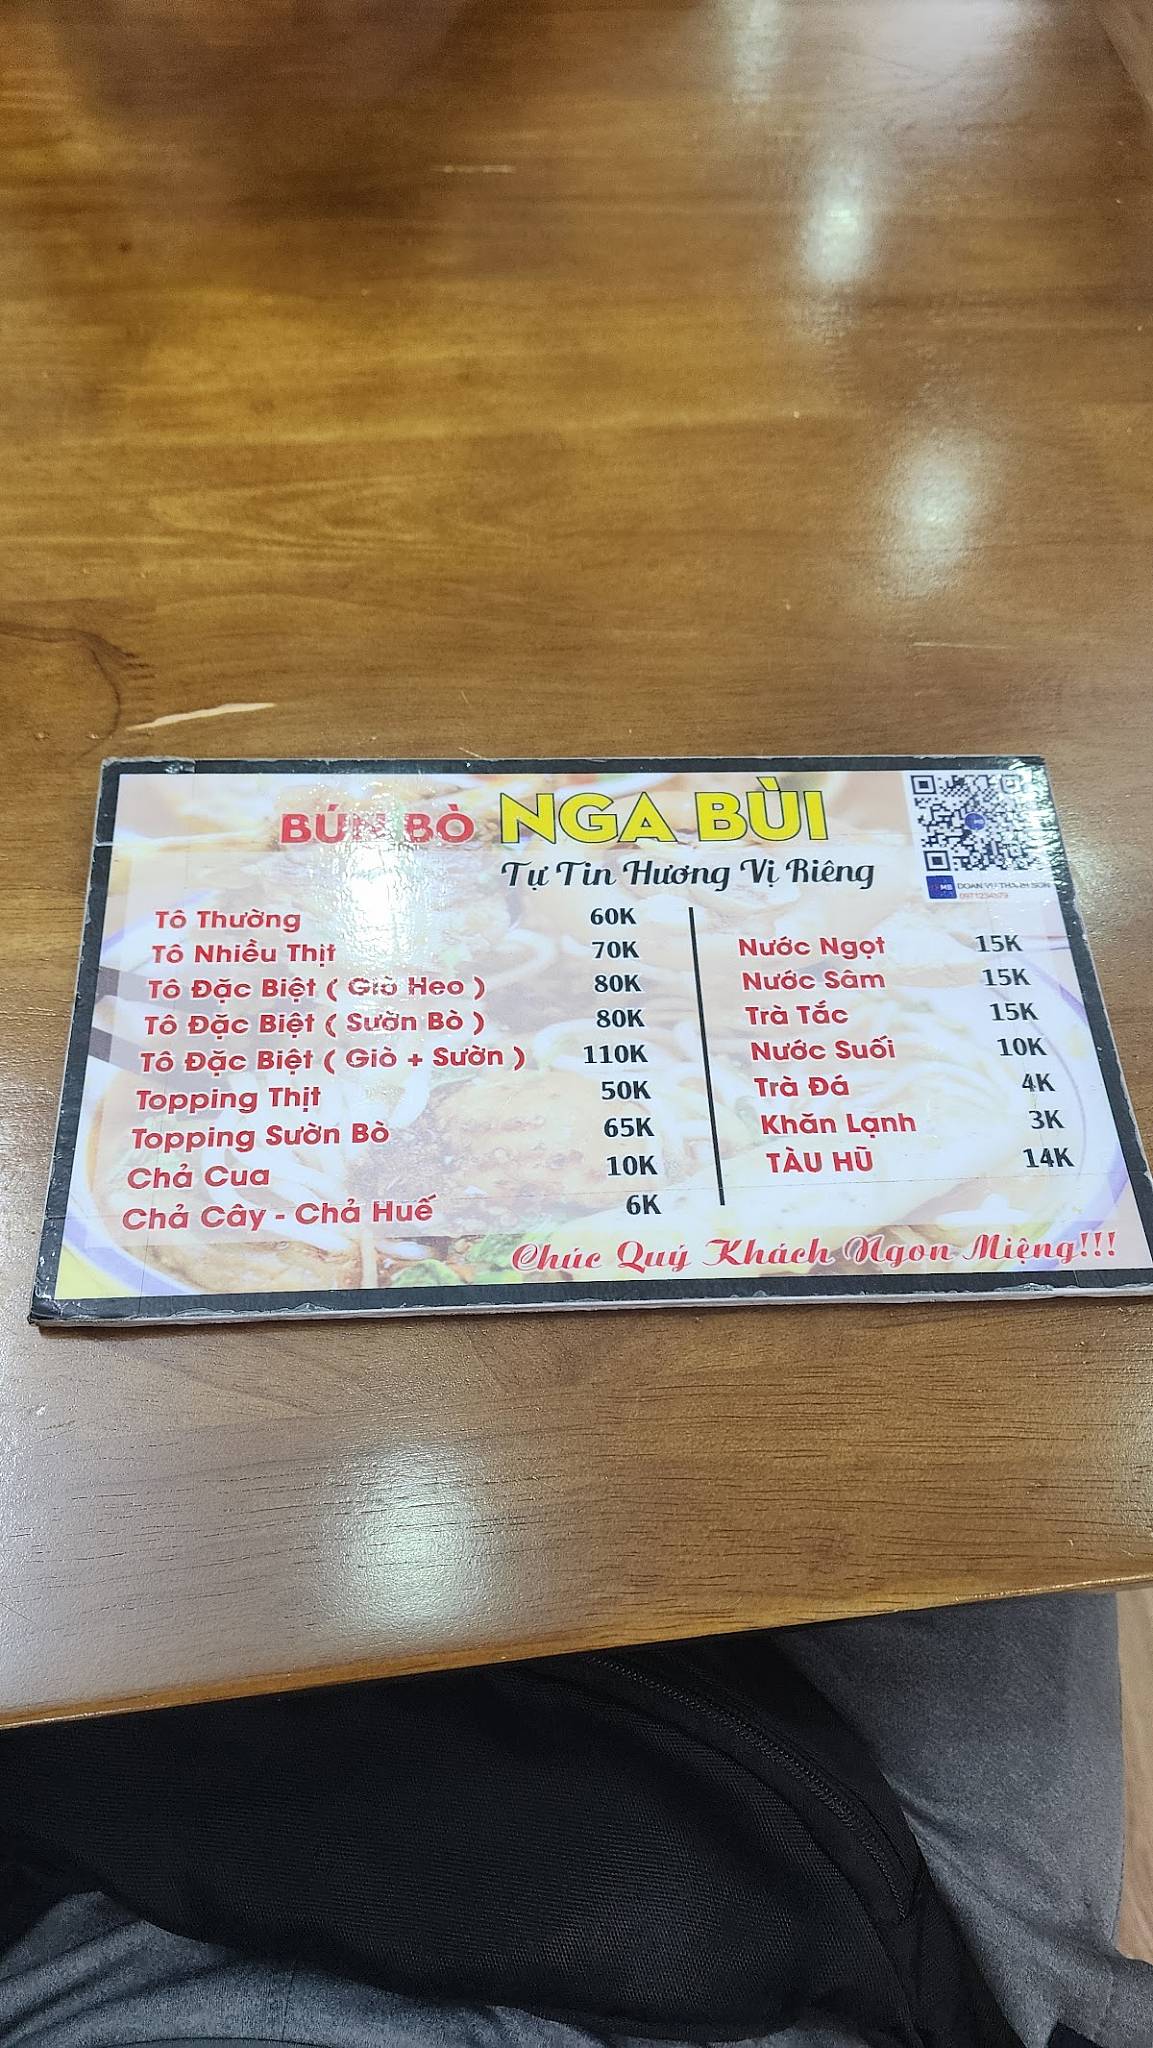 BÚN BÒ NGA BÙI
Tự Tin Hương Vị Riêng
MB
DOAN VU THANH SON
Tô Thường 60K
Tô Nhiều Thịt 70K
Tô Đặc Biệt ( Giò Heo ) 80K
Tô Đặc Biệt ( Sườn Bò ) 80K
Tô Đặc Biệt ( Giò + Sườn ) 110K
Topping Thịt 50K
Topping Sườn Bò 65K
Chả Cua 10K
Chả Cây - Chả Huế 6K
Nước Ngọt 15K
Nước Sâm 15K
Trà Tắc 15K
Nước Suối 10K
Trà Đá 4K
Khăn Lạnh 3K
TÀU HŨ 14K
Chúc Quý Khách Ngon Miệng!!!